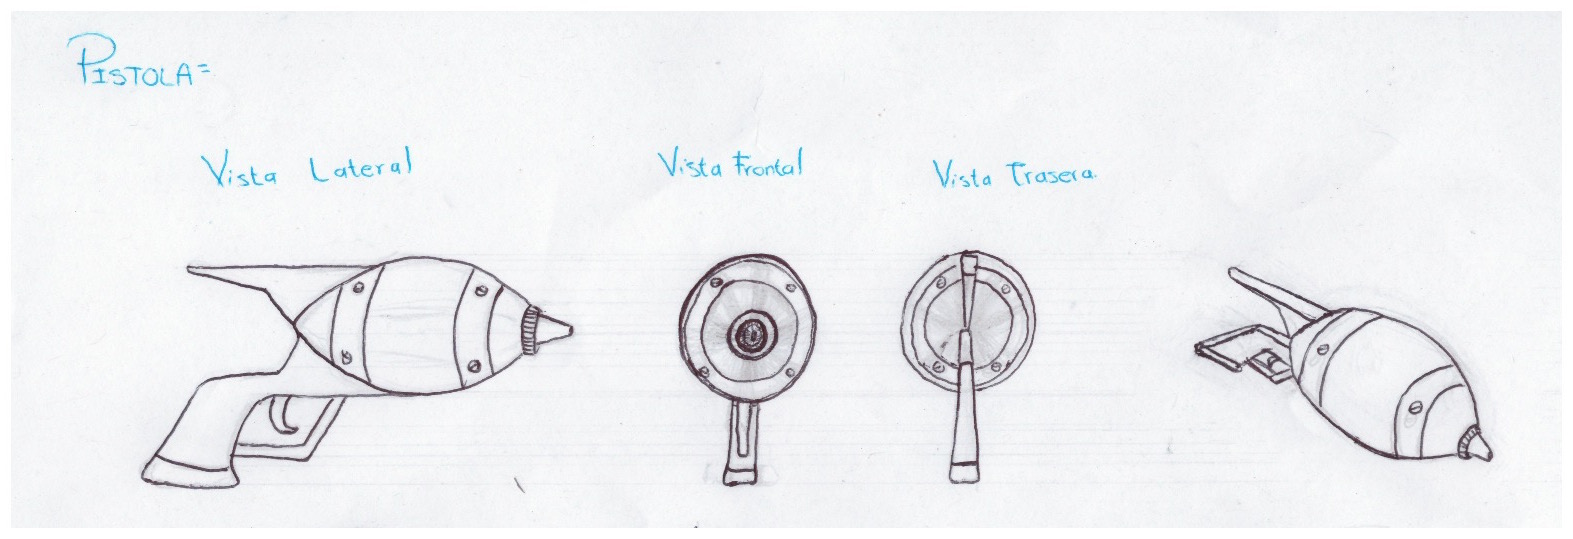 PISTOLA=
Vista Lateral
Vista Frontal
Vista Trasera.